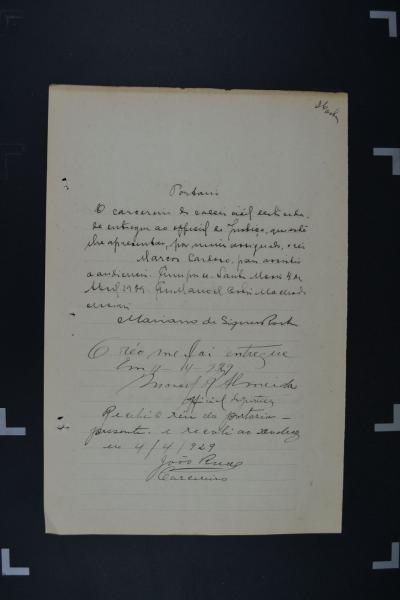 Portaria
O carcereiro da cadeia civil desta cidade
entregue ao official de Justiça, que este
lhe apresentar, por mim assignado, o réu
Marcos Cardoso, para assistir
a audiencia. Cumpra. Santa Maria, 4 de
Abril, 1929. Eu Manoel Machado
escrivão
Mariano de Siqueira Rocha
O réo me foi entregue
Em 4-4-929
Manoel A Almeida
Official de justiça
Recebi o réu da portaria
presente e recolhi ao xadrez
em 4/4/929
João
Carcereiro